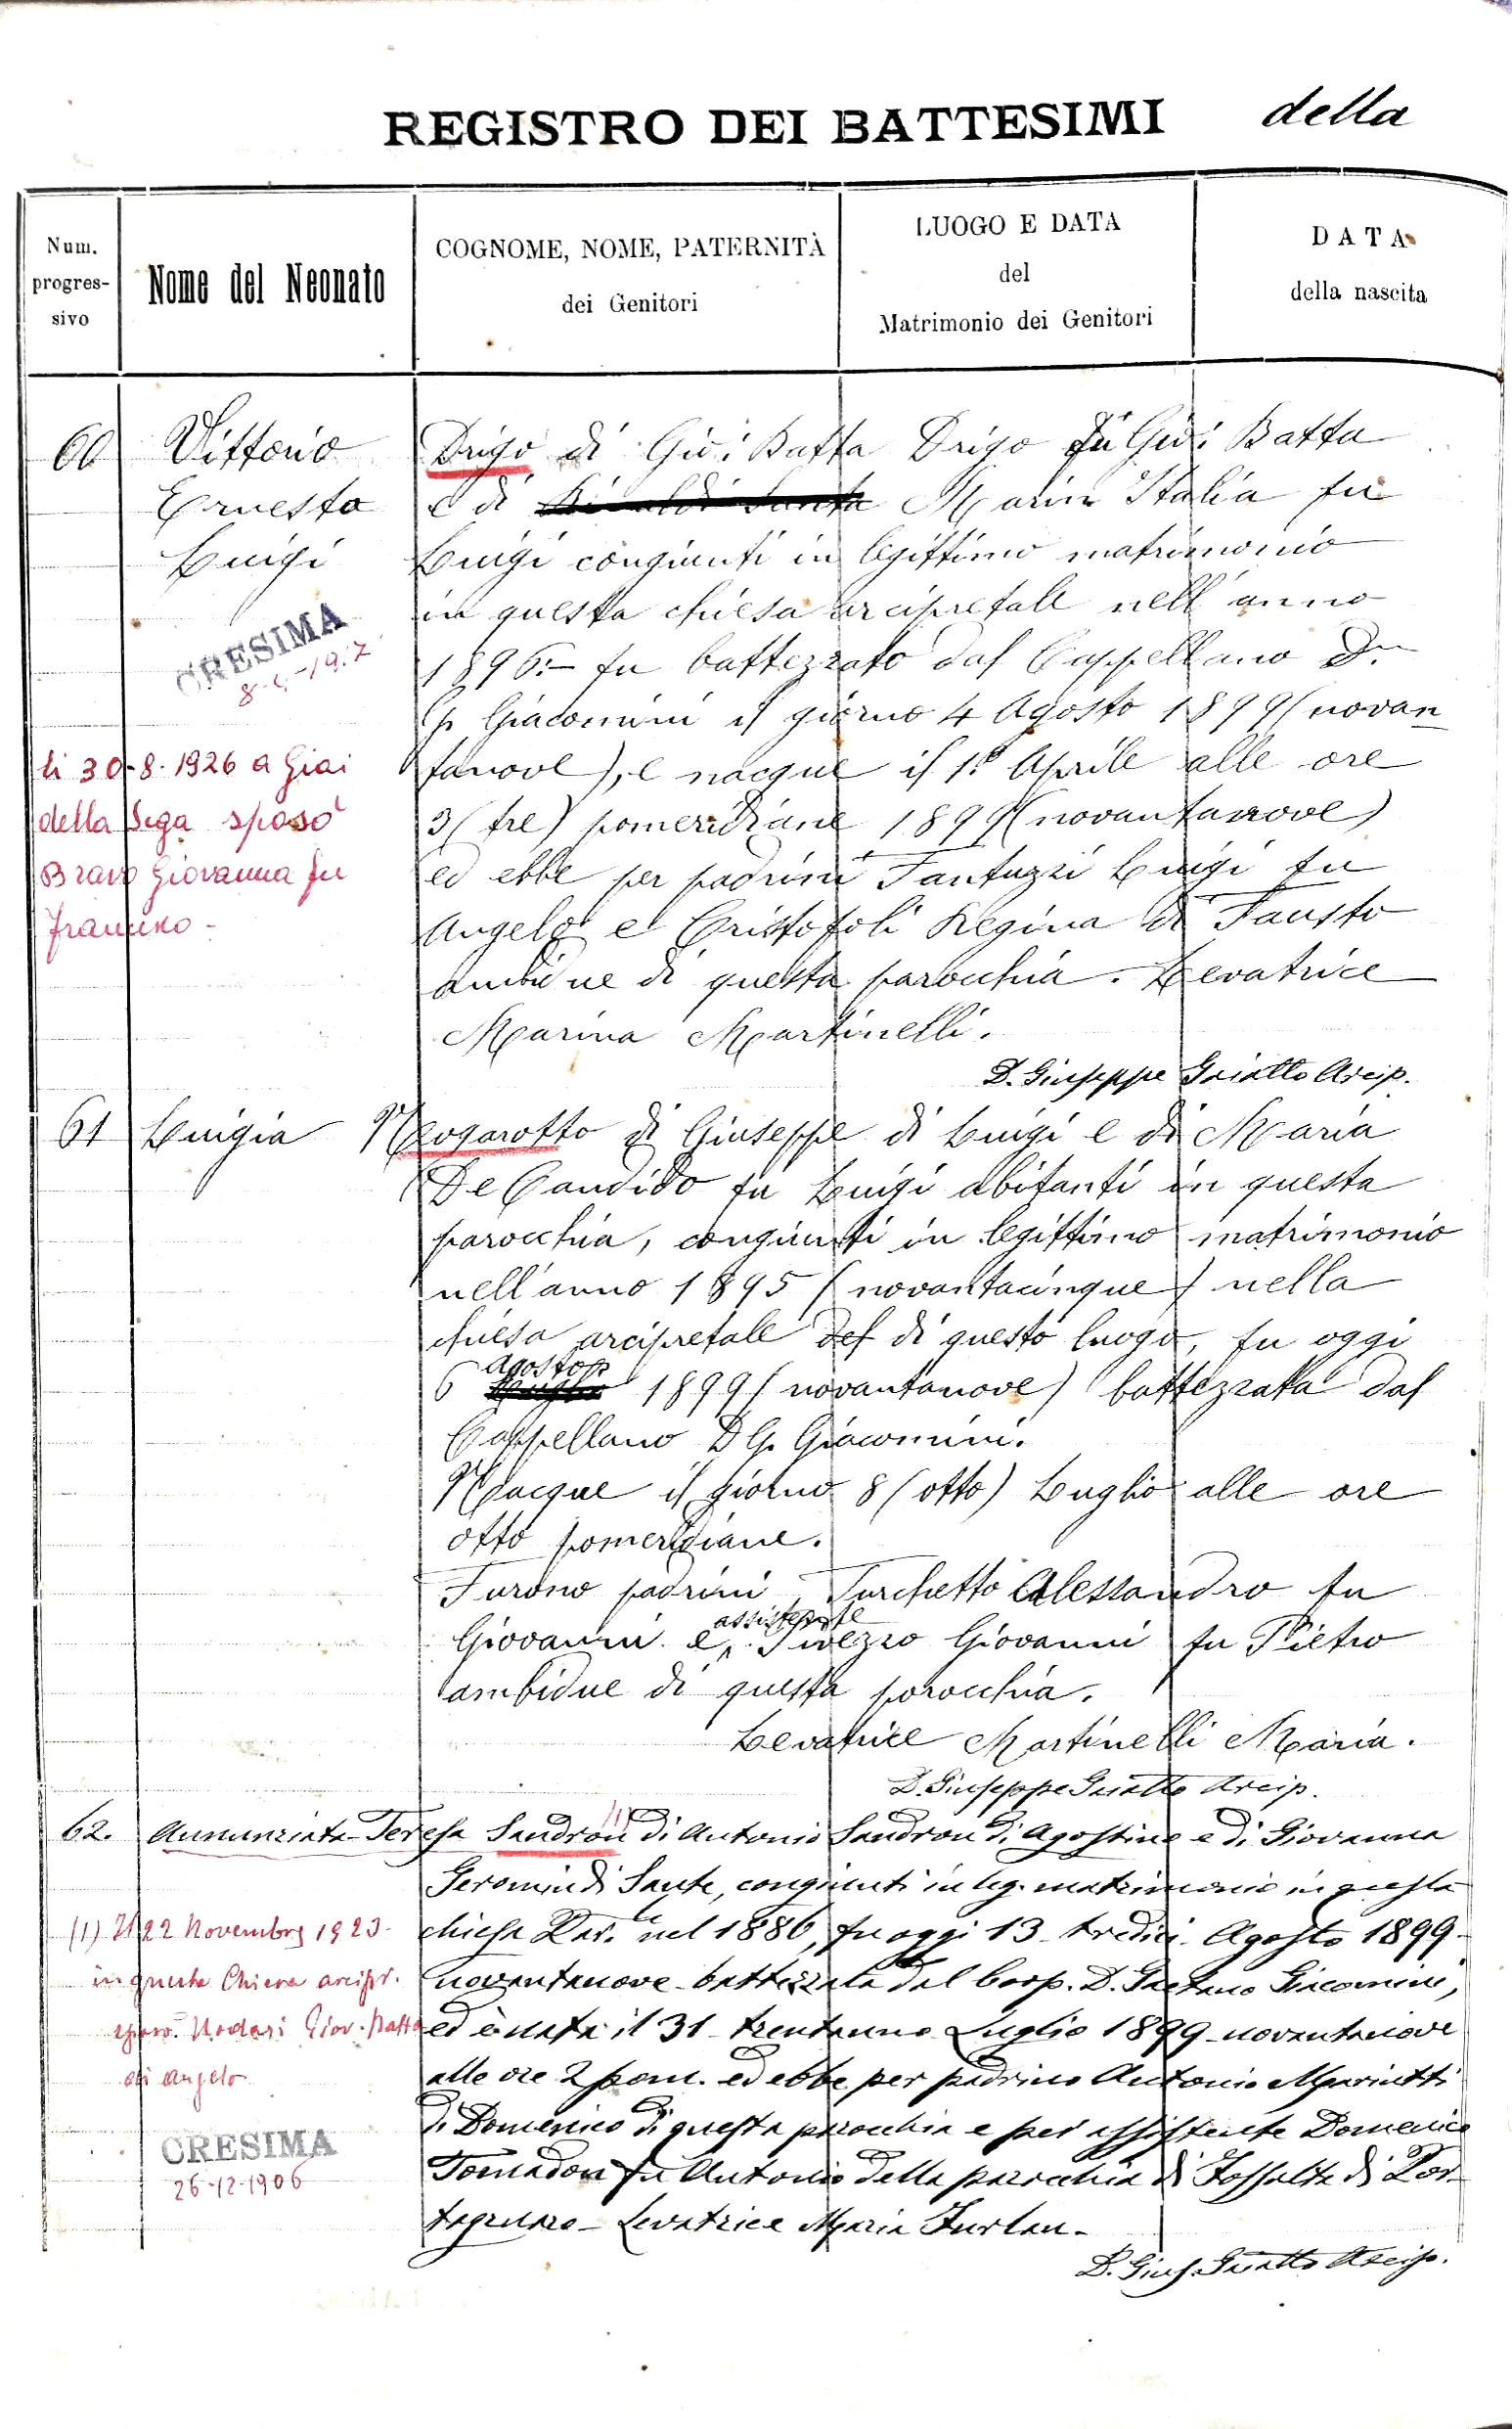 REGISTRO DEI BATTESIMI della
Num. progres-sivo
Nome del Neonato
COGNOME, NOME, PATERNITÀ
dei Genitori
LUOGO E DATA
del
Matrimonio dei Genitori
DATA
della nascita
60 Vittorio Drigo di Gio: Batta Drigo fu Gio: Batta
Ernesto e di Marin Italia fu
Luigi Luigi congiunti in legittimo matrimonio
in questa chiesa arcipretale nell'anno
CRESIMA
1896:- fu battezzato dal Cappellano Dn
G. Giacomini il giorno 4 Agosto 1899 (novan
tanove), e nacque il 1º Aprile alle ore
3 (tre) pomeridiane 1899 (novantanove)
ed ebbe per padrini Fantuzzi Luigi fu
Angelo e Cristofoli Regina di Fausto
ambidue di questa parocchia. Levatrice
Marina Martinelli.
D. Giuseppe Arcip.
li 30-8-1926 a Giai
della Sega sposò
Bravo Giovanna fu
61 Luigia Nogarotto di Giuseppe di Luigi e di Maria
De Candido fu Luigi abitanti in questa
parocchia, congiunti in legittimo matrimonio
nell'anno 1895 (novantacinque) nella
chiesa arcipretale del di questo luogo, fu oggi
6 Agosto 1899 (novantanove) battezzata dal
Cappellano D G. Giacomini.
Nacque il giorno 8 (otto) Luglio alle ore
otto pomeridiane.
Furono padrini Turchetto Alessandro fu
Giovanni e assistente Giovanni fu Pietro
ambidue di questa parocchia.
Levatrice Martinelli Maria.
D. Giuseppe Arcip.
62. Annunziata Teresa Sandron (1) di Antonio Sandron di Agostino e di Giovanna
Geromin di Sante, congiunti in leg. matrimonio in questa
chiesa Par. nel 1886, fu oggi 13 tredici Agosto 1899
novantanove battezzata dal Coop. D. Gaetano Giacomini,
ed è nata il 31 trentuno Luglio 1899 novantanove
alle ore 2 pom. ed ebbe per padrino Antonio Mariutti
di Domenico di questa parocchia e per assistente Domenico
Tomadon fu Antonio della parocchia di Fossalta di Por-
togruaro - Levatrice Maria Furlan -
D. Gius. Arcip.
(1) Il 22 Novembre 1923
in questa Chiesa arcipr.
sposò Nodari Giov. Batta
di Angelo
CRESIMA
26-12-1906